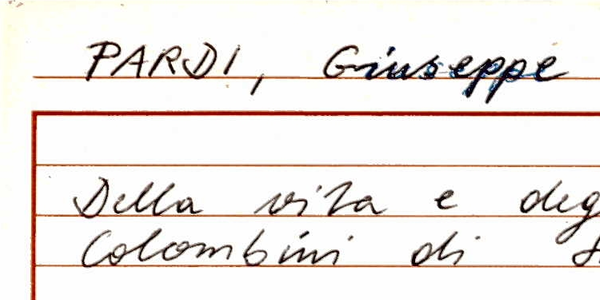 PARDI, Giuseppe
Della vita e deg
Colombini di